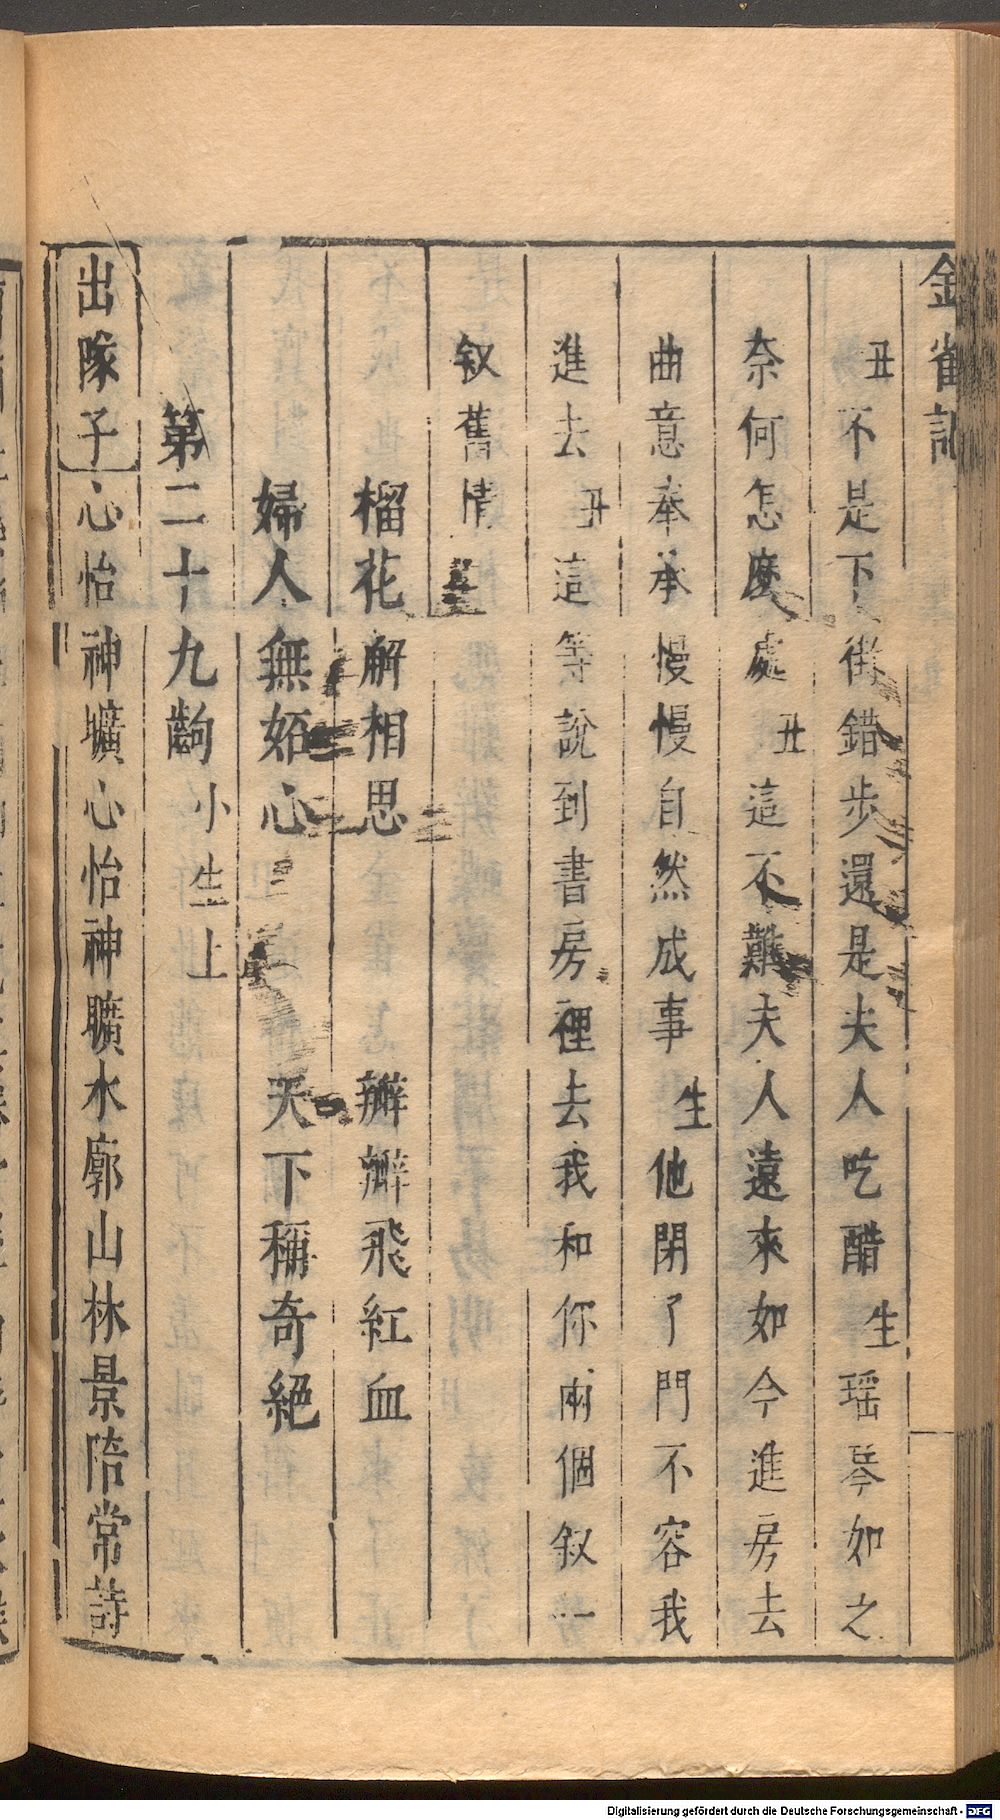 金雀記
丑不是下街錯步還是夫人吃醋生瑶琴如之
奈何怎麼處丑這不難夫人遠來如今進房去
曲意奉承慢慢自然成事生他閉了門不容我
進去丑這等說到書房裡去我和你兩個叙一
叙舊情
榴花解相思 瓣瓣飛紅血
婦人無妬心 天下稱奇絕
第二十九齣小生上
出隊子心怡神曠心怡神曠水廓山林景陪常詩
Digitalisierung gefördert durch die Deutsche Forschungsgemeinschaft - DFG